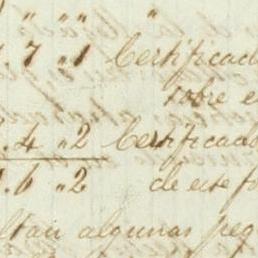 " " " "
7 " 1 Certificado
sobre e
.4 " 2 Certificado
.6 " 2 de este fo
ltan algunas peg